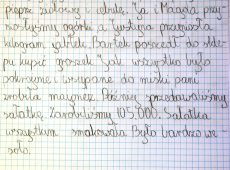 pieprz ziołowy i oliwki. Ja i Magda przy
niosłyśmy ogórki a Justyna przyniosła
kilogram jabłek. Bartek poszedł do skle
pu kupić groszek. Jak wszystko było
pokrojone i wsypane do miski pani
zrobiła majonez. Później sprzedawaliśmy
sałatkę. Zarobiliśmy 105,000. Sałatka
wszystkim smakowała. Było bardzo we
soło.